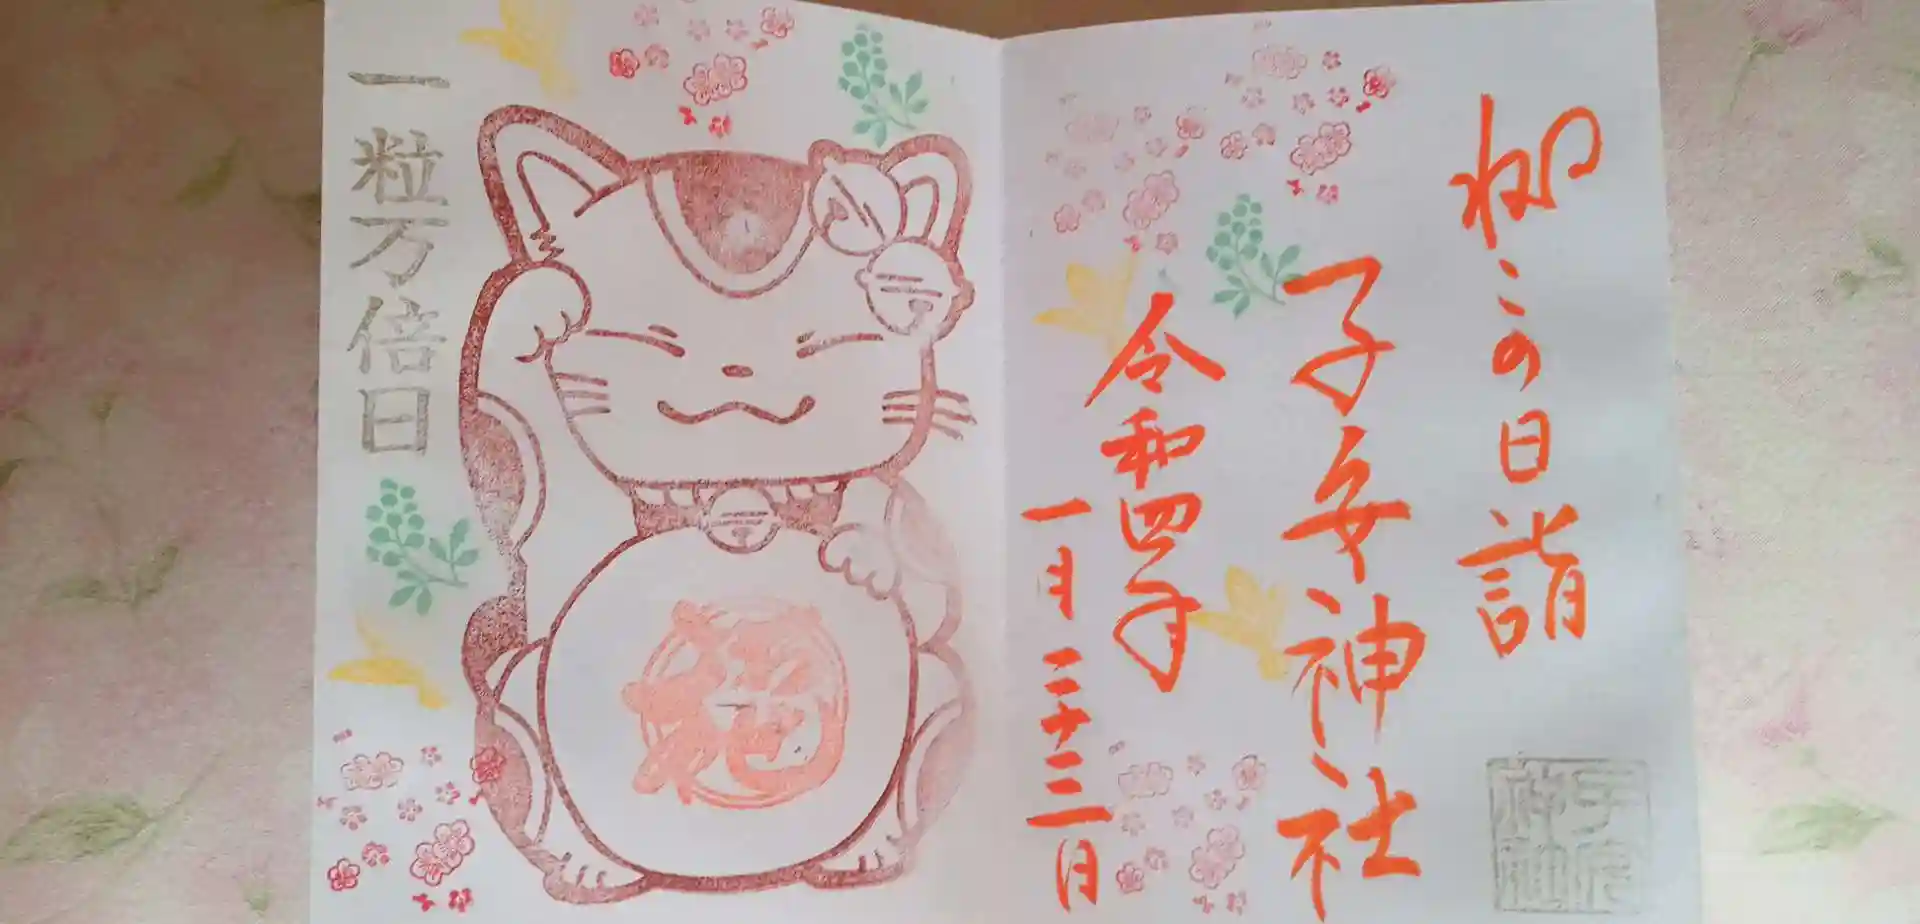 ねこの日詣
子安神社
令和四年
一月二十二日
子安
神社
一粒万倍日
福